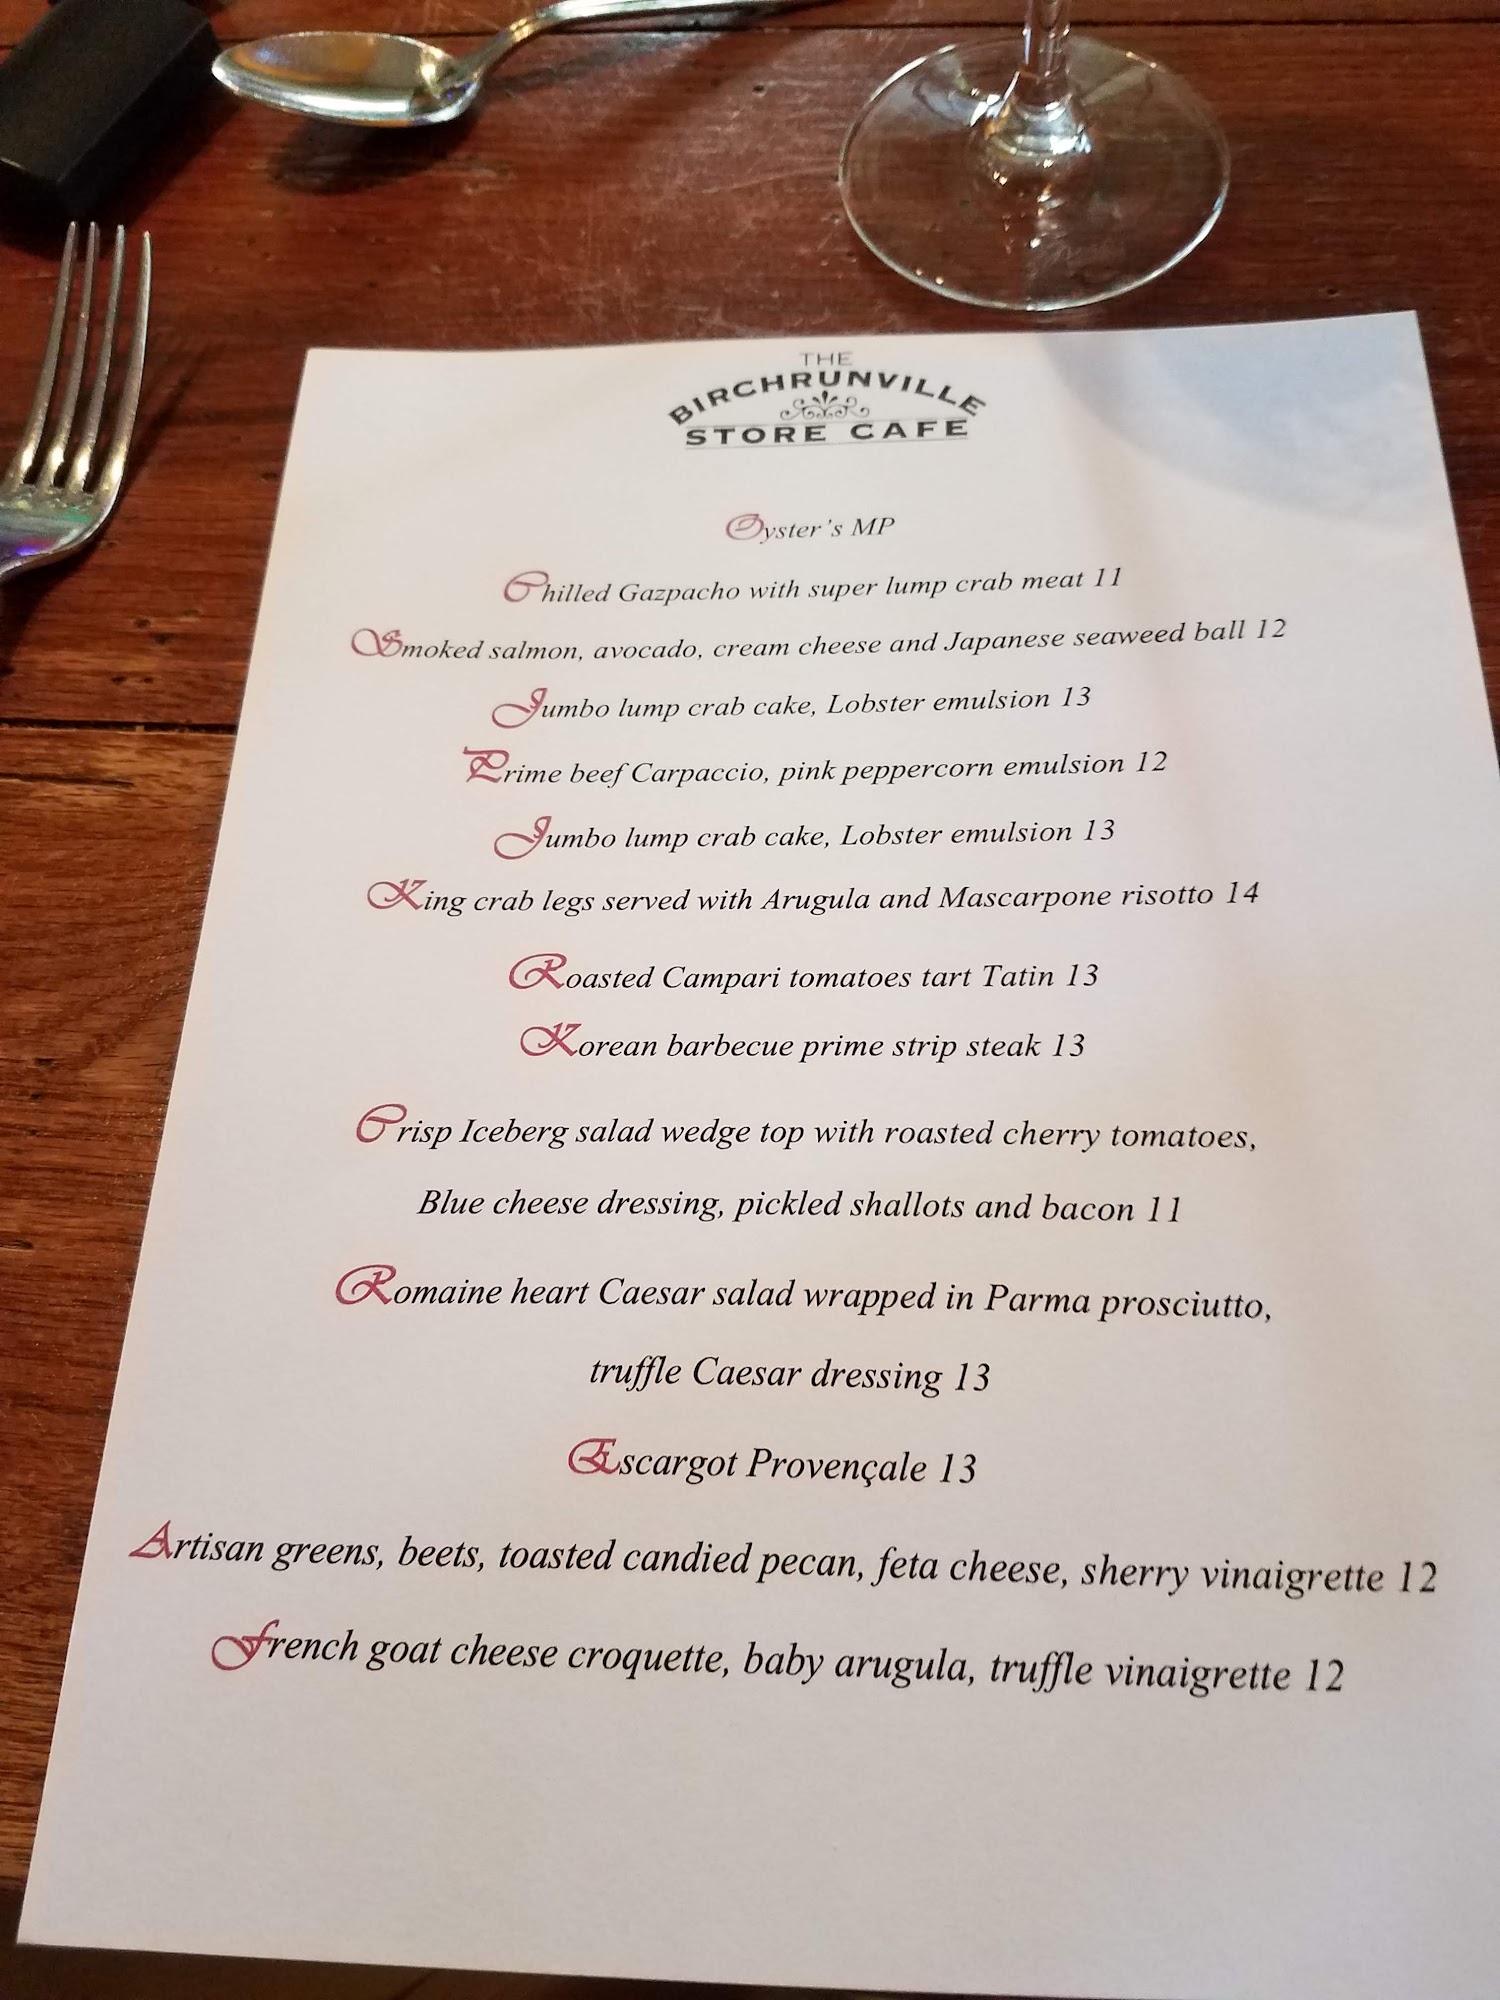 THE
BIRCHRUNVILLE
STORE CAFE
Oyster's MP
Chilled Gazpacho with super lump crab meat 11
Smoked salmon, avocado, cream cheese and Japanese seaweed ball 12
Jumbo lump crab cake, Lobster emulsion 13
Prime beef Carpaccio, pink peppercorn emulsion 12
Jumbo lump crab cake, Lobster emulsion 13
King crab legs served with Arugula and Mascarpone risotto 14
Roasted Campari tomatoes tart Tatin 13
Korean barbecue prime strip steak 13
Crisp Iceberg salad wedge top with roasted cherry tomatoes,
Blue cheese dressing, pickled shallots and bacon 11
Romaine heart Caesar salad wrapped in Parma prosciutto,
truffle Caesar dressing 13
Escargot Provençale 13
Artisan greens, beets, toasted candied pecan, feta cheese, sherry vinaigrette 12
French goat cheese croquette, baby arugula, truffle vinaigrette 12